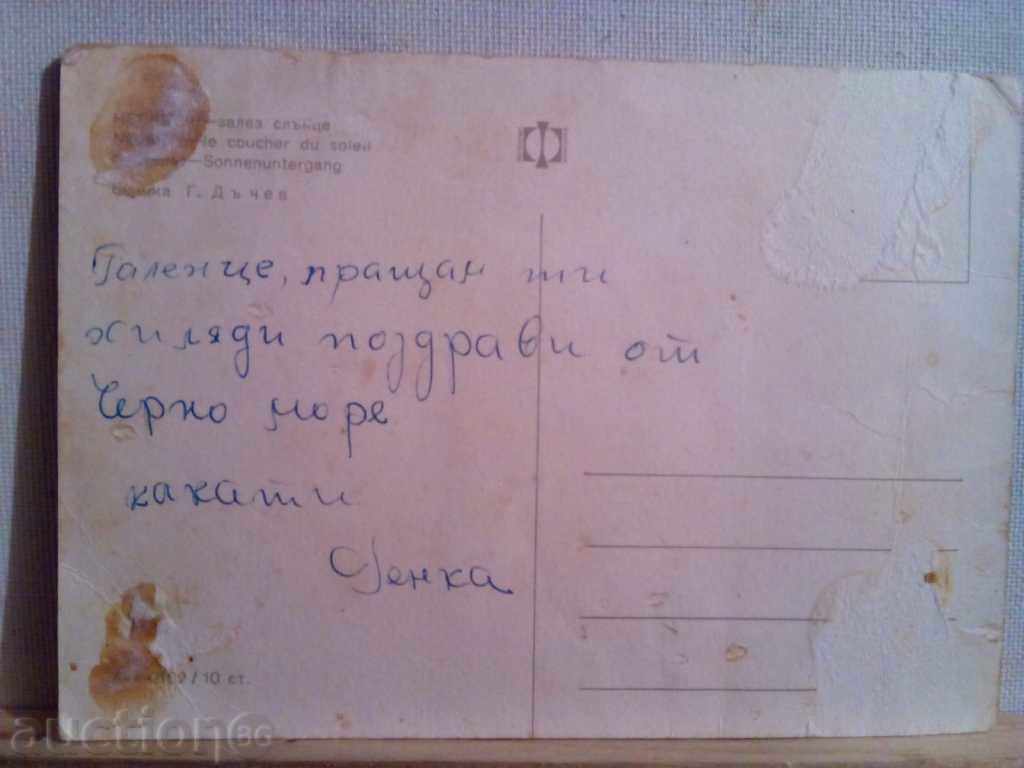 —залез слънце
le coucher du soleil
—Sonnenuntergang
Г. Дъчев
Галенце, пращам ти
хиляди поздрави от
Черно море
кака ти
Генка
/10 ст.
auction BG